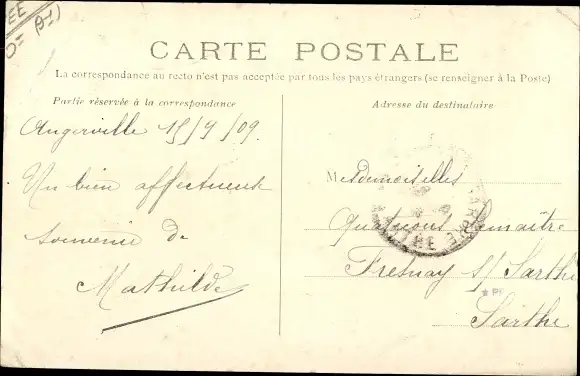 CARTE POSTALE
La correspondance au recto n'est pas acceptée par tous les pays étrangers (se renseigner à la Poste)
Partie réservée à la correspondance
Adresse du destinataire
Angerville 15/9/09.
Un bien affectueux
souvenir de
Mathilde
Mesdemoiselles
Lemaître
Fresnay s/ Sarthe
Sarthe
SARTHE